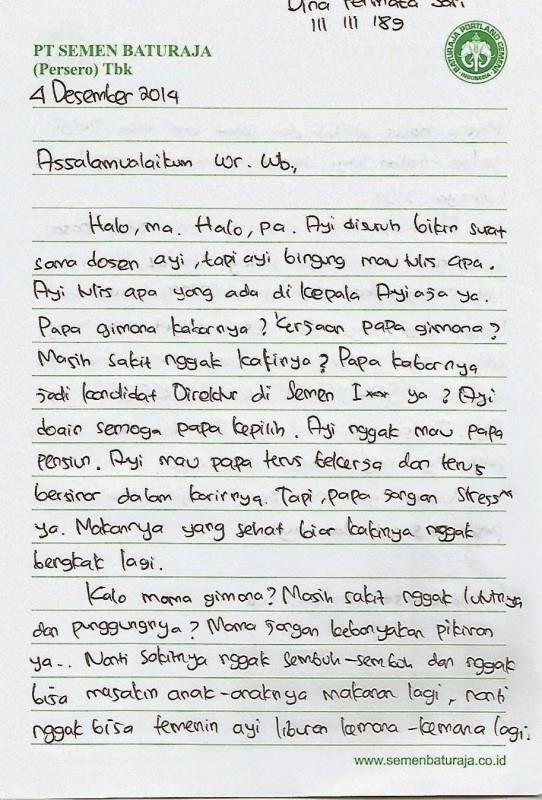 Dina Permata Sari
111 111 189
PT SEMEN BATURAJA
(Persero) Tbk
BATURAJA PORTLAND CEMENT
INDONESIA
4 Desember 2014
Assalamualaikum Wr. Wb.,
Halo, ma. Halo, pa. Ayi disuruh bikin surat
sama dosen ayi, tapi ayi bingung mau tulis apa.
Ayi tulis apa yang ada di kepala Ayi aja ya.
Papa gimana kabarnya? Kerjaan papa gimana?
Masih sakit nggak kakinya? Papa kabarnya
jadi kandidat Direktur di Semen Ixxx ya? Ayi
doain semoga papa kepilih. Ayi nggak mau papa
pensiun. Ayi mau papa terus bekerja dan terus
bersinar dalam karirnya. Tapi, papa jangan stress"
ya. Makannya yang sehat biar kakinya nggak
bengkak lagi.
Kalo mama gimana? Masih sakit nggak lututnya
dan punggungnya? Mama jangan kebanyakan pikiran
ya... Nanti sakitnya nggak sembuh-sembuh dan nggak
bisa masakin anak-anaknya makanan lagi, nanti
nggak bisa temenin ayi liburan kemana-kemana lagi.
www.semenbaturaja.co.id